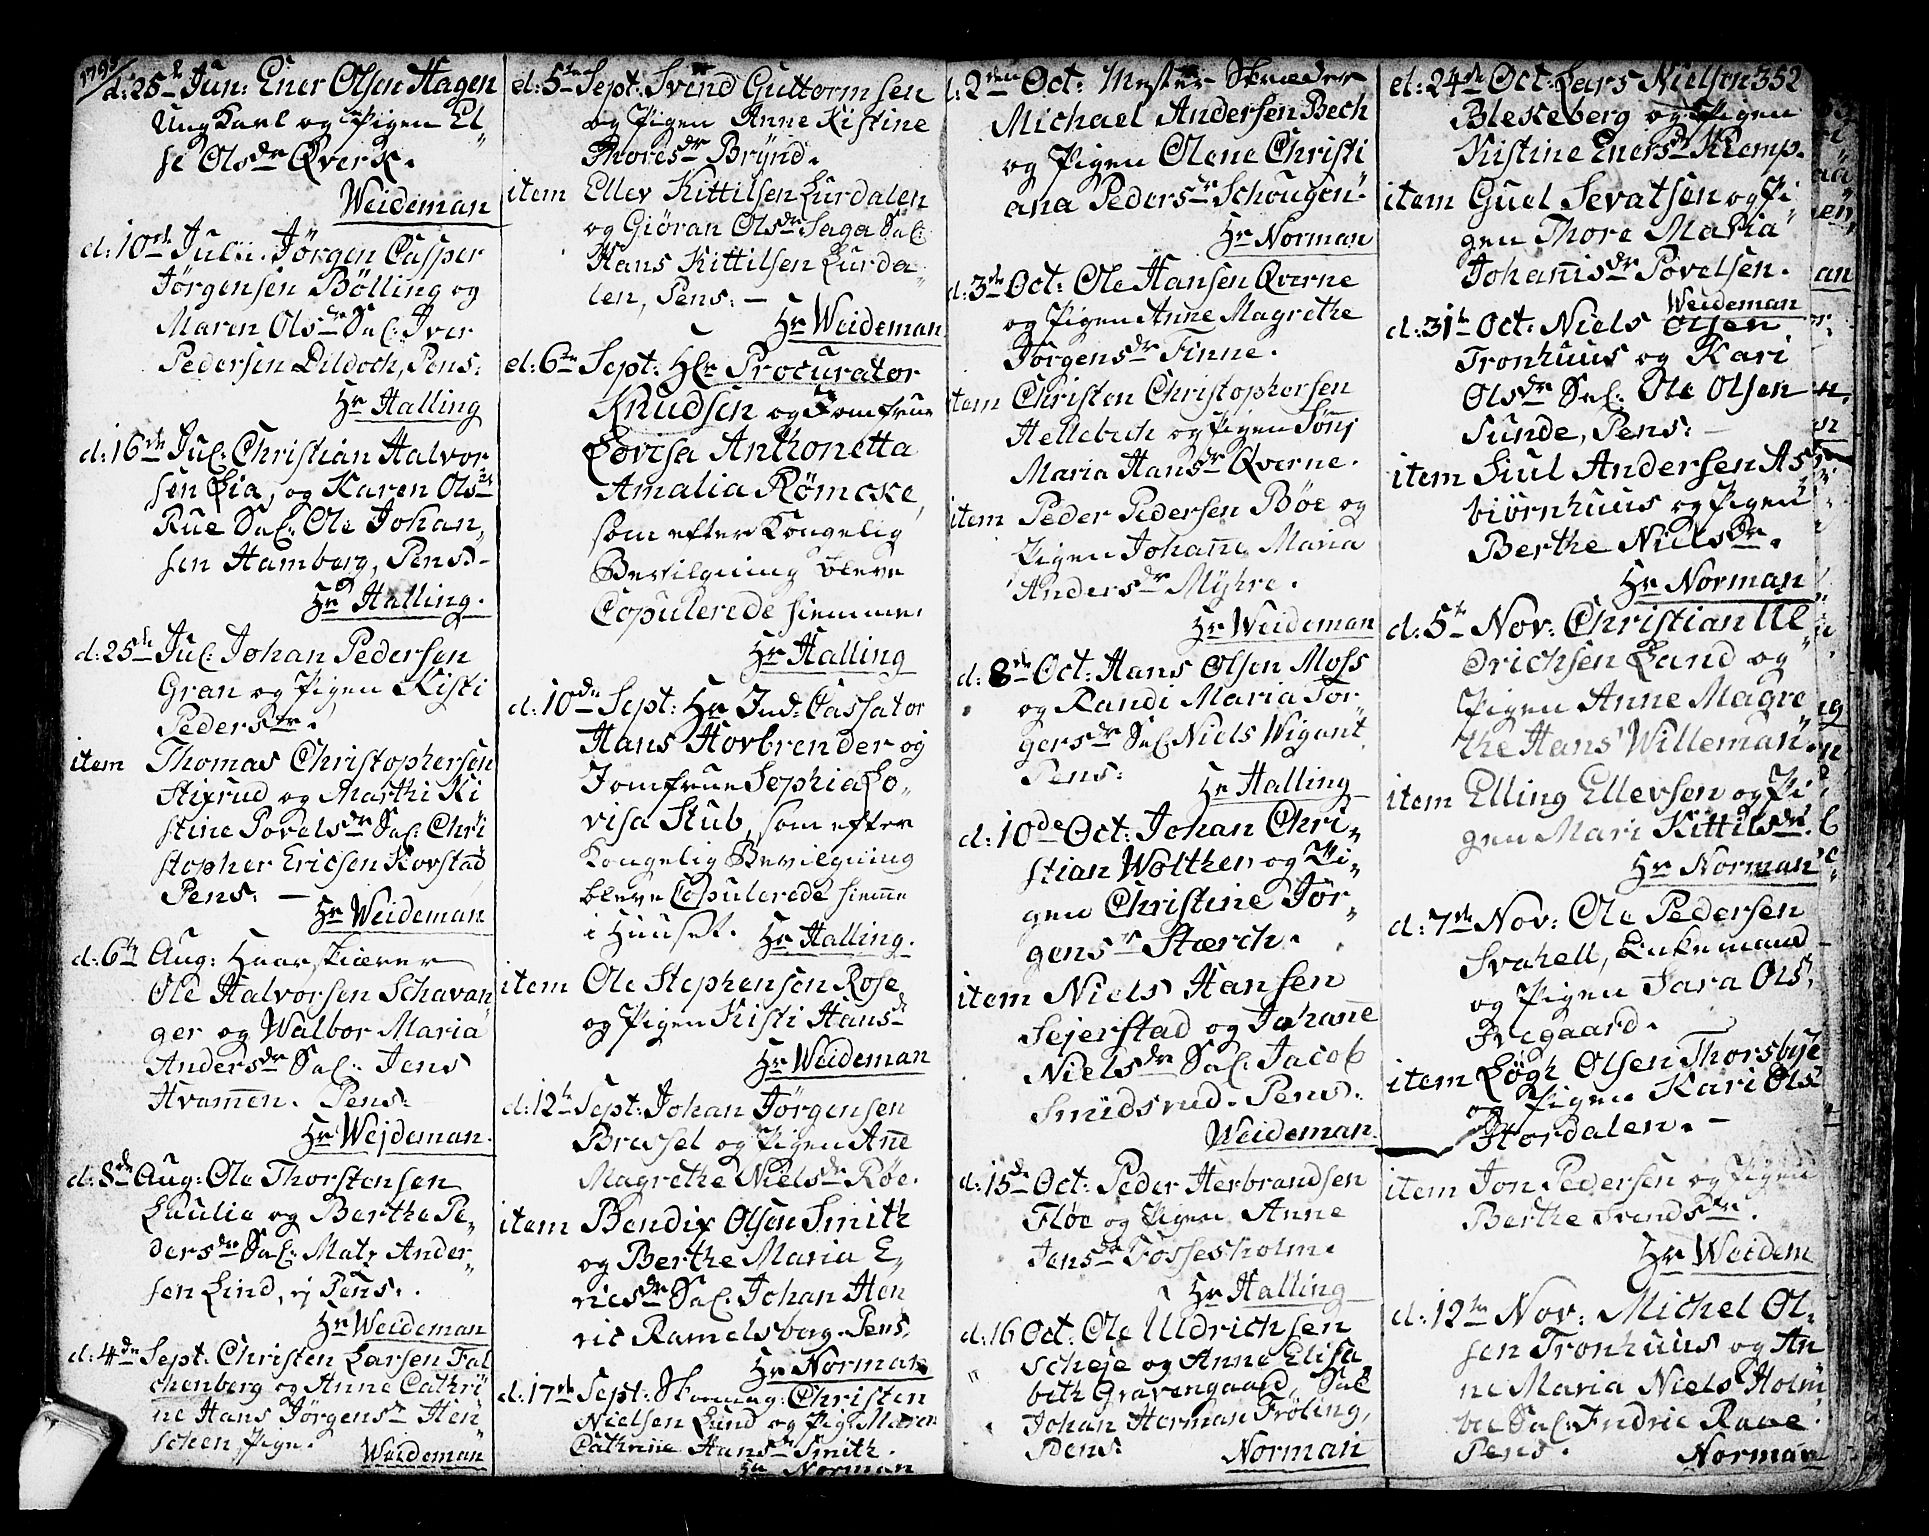 1795
d: 25de Jun: Ener Olsen Hagen
Ung Karl og Pigen El„
se Olsdr Qverk.
Weideman
d: 10de Julii. Jørgen Casper
Jørgensen Bölling og
Maren Olsdr Sal: Iver
Pedersen Dildoch, Pens:
Hr Halling
d: 16de Jul: Christian Halvor„
sen Lia, og Karen Olsdr
Rue Sal: Ole Johan„
sen Hamberg, Pens:
Hr Halling.
d: 25de Jul: Johan Pedersen
Gran og Pigen Kisti
Pedersdr.
item Thomas Christophersen
Stixrud og Marthi Ki
stine Povelsdr Sal: Chri
stopher Ericsen Korstad
Pens: —
Hr Weideman
d: 6te Aug: Haarskiærer
Ole Halvorsen Schavan
ger og Walbor Maria
Andersdr Sal: Jens
Hvamen. Pens:
Hr Wejdeman.
d: 8de Aug: Ole Thorstensen
Laulie og Berthe Pe„
dersdr Sal: Matz Ander„
sen Lind, ej Pens:
Hr Weideman
d: 4de Sept: Christen Larsen Fal
chenberg og Anne Cathri
ne Hans Jørgensdr Hen
schen, Pige.
Weideman
d: 5te Sept: Svend Guttormsen
og Pigen Anne Kistine
Thoresdr Brÿnd.
item Ellev Kittilsen Lurdalen
og Giøran Olsdr Saga Sal:
Hans Kittilsen Lurda„
len, Pens: —
Hr Weideman
d: 6te Sept: Hr Procurator
Knudsen og Jomfrue
Lovisa Anthonetta
Amalia Römcke,
som efter Kongelig
Bevilgning bleve
Copulerede hiemme.
Hr Halling
d: 10de Sept: Hr Ind: Cassator
Hans Horbrender og
Jomfrue Sophia Lo„
visa Stub, som efter
Kongelig Bevilgning
bleve Copulerede hiemme
i Huuset. Hr Halling.
item Ole Stephensen Rose
og Pigen Kisti Hansdr
Hr Weideman
d: 12te Sept: Johan Jørgensen
Bressel og Pigen Anne
Magrethe Nielsdr Røe.
item Bendix Olsen Smith
og Berthe Maria E„
ricsdr Sal: Johan Hen
ric Ramelsberg. Pens.
Hr Norman
d: 17de Sept: Christen
Nielsen Lund og Pig: Maren
Cathrine Hansdr Smith.
Hr Norman
d. 2den Oct: Mester Skræder
Michael Andersen Bech
og Pigen Olene Christi
ana Pedersdr Schougen.
Hr Norman
d: 3de Oct: Ole Hansen Qverne
og Pigen Anne Magrethe
Jørgensdr Finne.
item Christen Christophersen
Hellebech og Pigen Sønj
Maria Hansdr Qverne.
item Peder Pedersen Böe og
Pigen Johanne Maria
Andersdr Mÿhre.
Hr Weideman
d: 8de Oct: Hans Olsen Moss
og Randi Maria Tor„
gersdr Sal: Niels Wigant
Pens:
Hr Halling
d: 10de Oct: Johan Chri„
stian Wolthen og Pi„
gen Christine Jør„
gensdr Stærch.
item Niels Hansen
Sejerstad og Johanne
Nielsdr Sal: Jacob
Smidsrud. Pens.
Weideman.
d: 15de Oct: Peder Herbrandsen
Fløe og Pigen Anne
Jensdr Fossesholm.
Hr Halling
d: 16 Oct: Ole Uldrichsen
Scheje og Anne Elisa„
beth Gravengaard, Sal
Johan Herman Frøling,
Pens:
Norman
352
d: 24de Oct: Lars Nielsen
Blekeberg og Pigen
Kistine Enersdr Klemp.
item Guel Sevatsen og Pi
gen Thore Maria
Johannisdr Povelsen.
Weideman
d: 31te Oct: Niels Olsen
Tronhuus og Kari
Olsdr Sal: Ole Olsen
Sunde, Pens: —
item Siul Andersen As
biørnhuus og Pigen
Berthe Nielsdr.
Hr Norman
d: 5te Nov: Christian Ul
drichsen Land og
Pigen Anne Magre
the Hans Willeman
item Elling Ellevsen og Pi
gen Mari Kittilsdr.
Hr Norman
d: 7de Nov: Ole Pedersen
Svahell, Enkemand
og Pigen Sara Ols,
Ivegaard.
item Løgh Olsen Thorsbÿe
og Pigen Kari Ols
Hordalen. —
item Jon Pedersen og Pigen
Berthe Svendsdr.
Hr Weidem
d: 12te Nov: Michel Ol„
sen Tronhuus og An
ne Maria Niels Holm
boe Sal: Fridric Raae.
Pens.
Norman